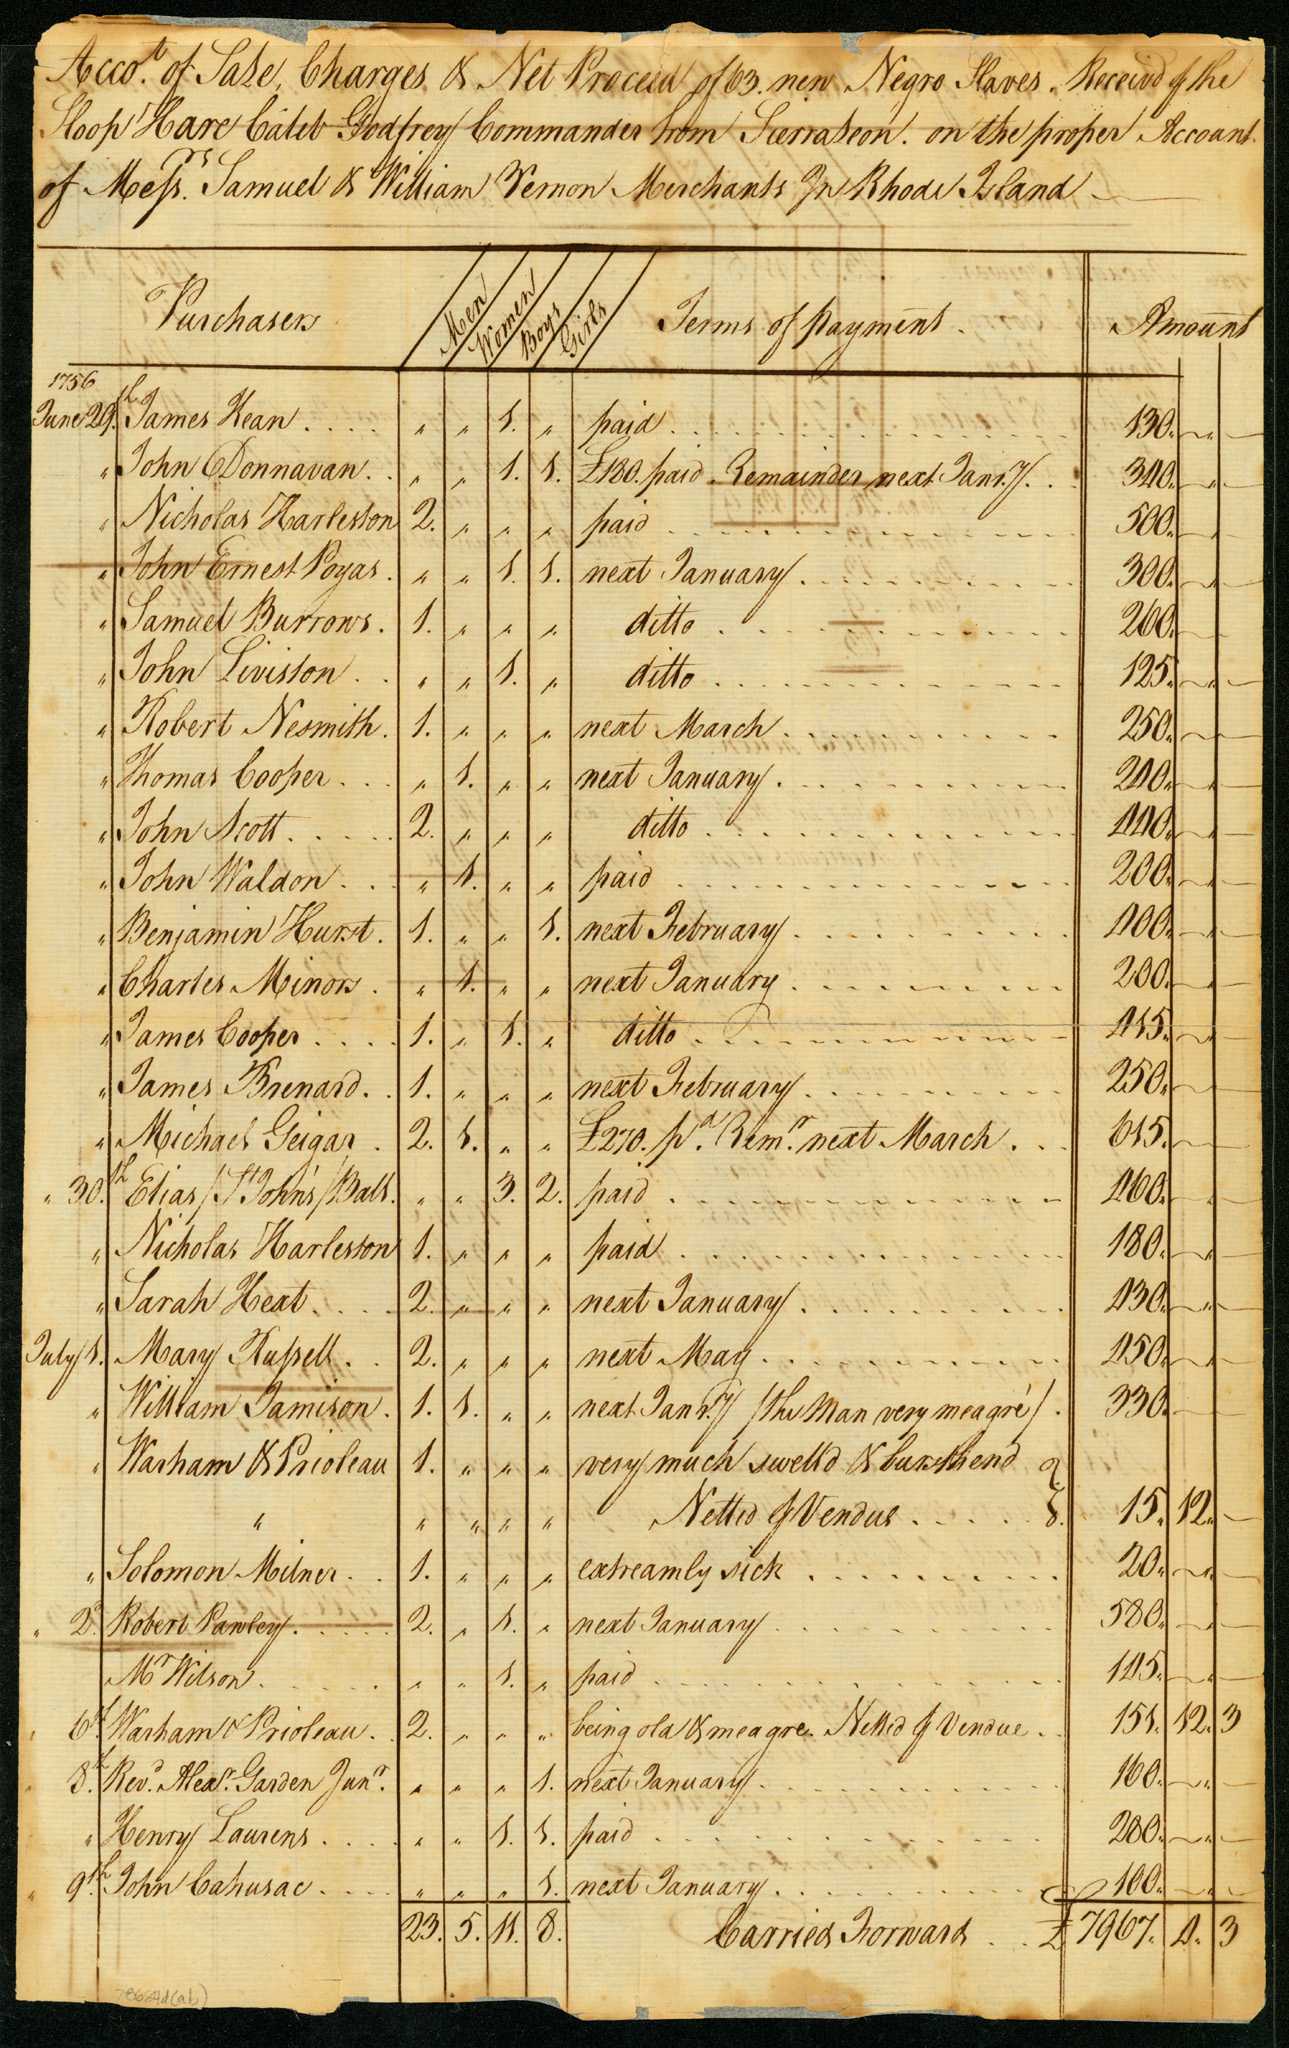 Acco.t of Sale, Charges & Net Proceed of 63. new Negro Slaves. Receiv'd ⅌ the
Sloop Hare Caleb Godfrey Commander from Sierraleon. on the proper Account
of Mess.rs Samuel & William Vernon Merchants In Rhode Island
Purchasers Men Women Boys Girls Terms of payment. Amount
1756
June 29.th James Kean . . . . „ „ 1. „ paid . . . 130. „
„ John ODonnavan . . „ „ 1. 1. £180. paid. Remainder next Janr.y . . 340. „
„ Nicholas Harleston 2. „ „ „ paid . . . 500. „
„ John Ernest Poyas . „ „ 1. 1. next January . . . 300. „
„ Samuel Burrows . 1. „ „ „ ditto . . . 260. „
„ John Liviston . . „ „ 1. „ ditto . . . 125. „
„ Robert Nesmith . 1. „ „ „ next March . . . 250. „
„ Thomas Cooper . . . „ 1. „ „ next January . . . 240. „
„ John Scott . . . . 2. „ „ „ ditto . . . 440. „
„ John Waldon . . . „ 1. „ „ paid . . . 200. „
„ Benjamin Hurst . 1. „ „ 1. next February . . . 400. „
„ Charles Minors . „ 1. „ „ next January . . . 200. „
„ James Cooper . . . . 1. „ 1. „ ditto . . . 415. „
„ James Brenard . . 1. „ „ „ next February . . . 250. „
„ Michael Geigar . 2. 1. „ „ £270. p.d Rem.r next March . . . 615. „
„ 30.th Elias /St Johns/ Ball . „ „ 3. 2. paid . . . 460. „
„ Nicholas Harleston 1. „ „ „ paid . . . 180. „
„ Sarah Hext . . . . 2. „ „ „ next January . . . 430. „
July 1. Mary Russell . . 2. „ „ „ next May . . . 450. „
„ William Jamison . 1. 1. „ „ next Janr.y /the Man very meagre/ . 330.
„ Warham & Prioleau 1. „ „ „ very much swell'd &
„ „ „ „ „ Netted ⅌ Vendue . . . . . 15. 12.
„ Solomon Milner . . 1. „ „ „ extreamly sick . . . 20. „
„ 2.d Robert Pawley . . . . 2. „ 1. „ next January . . . 580. „
M.r Wilson . . . . „ „ 1. „ paid . . . 145. „
„ 6.th Warham & Prioleau . . 2. „ „ „ being old & meagre. Netted ⅌ Vendue . . 151. 12. 3
„ 8.th Rev.d Alex.r Garden Jun.r „ „ „ 1. next January . . . 160. „
„ Henry Laurens . . . . „ „ 1. 1. paid . . . 280. „
„ 9.th John Cahusac . . . . „ „ „ 1. next January . . . 100. „
23. 5. 11. 8. Carried Forward . . £ 7967. 4. 3